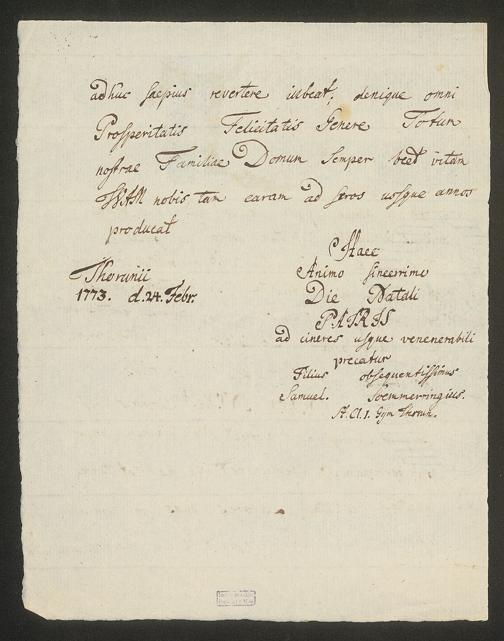 adhuc saepius revertere iubeat; denique omni
Prosperitatis Felicitatis Genere Totum
nostrae Familiae Domum semper beet vitam
nobis tam caram ad seros usque annos
producat
Haec
Animo sincerimo
Die Natali
PATRIS
ad cineres usque venenerabili
precatur
Filius obsequentissimus
Samuel. Soemmerringius.
A. Cl. 1. Gym Thorun.
Thorunii
1773. d. 24. Febr.